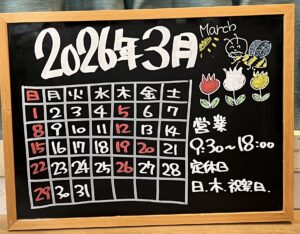 2026年3月
March
日 月 火 水 木 金 土
1 2 3 4 5 6 7
8 9 10 11 12 13 14
15 16 17 18 19 20 21
22 23 24 25 26 27 28
29 30 31
営業
9:30~18:00
定休日
日.木.祝祭日.